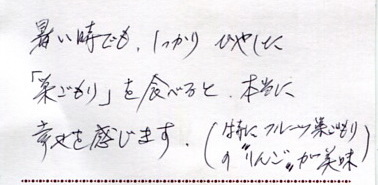 暑い時でも、しっかりひやした
「巣ごもり」を食べると、本当に
幸せを感じます。(特にフルーツ巣ごもり
の"りんご"が美味)